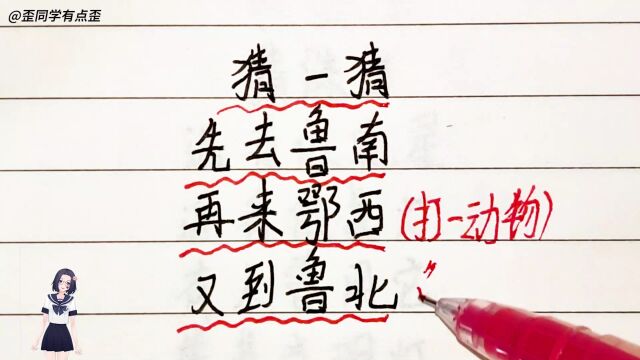 @歪同学有点歪
猜一猜
先去鲁南
再来鄂西(打一动物)
又到鲁北